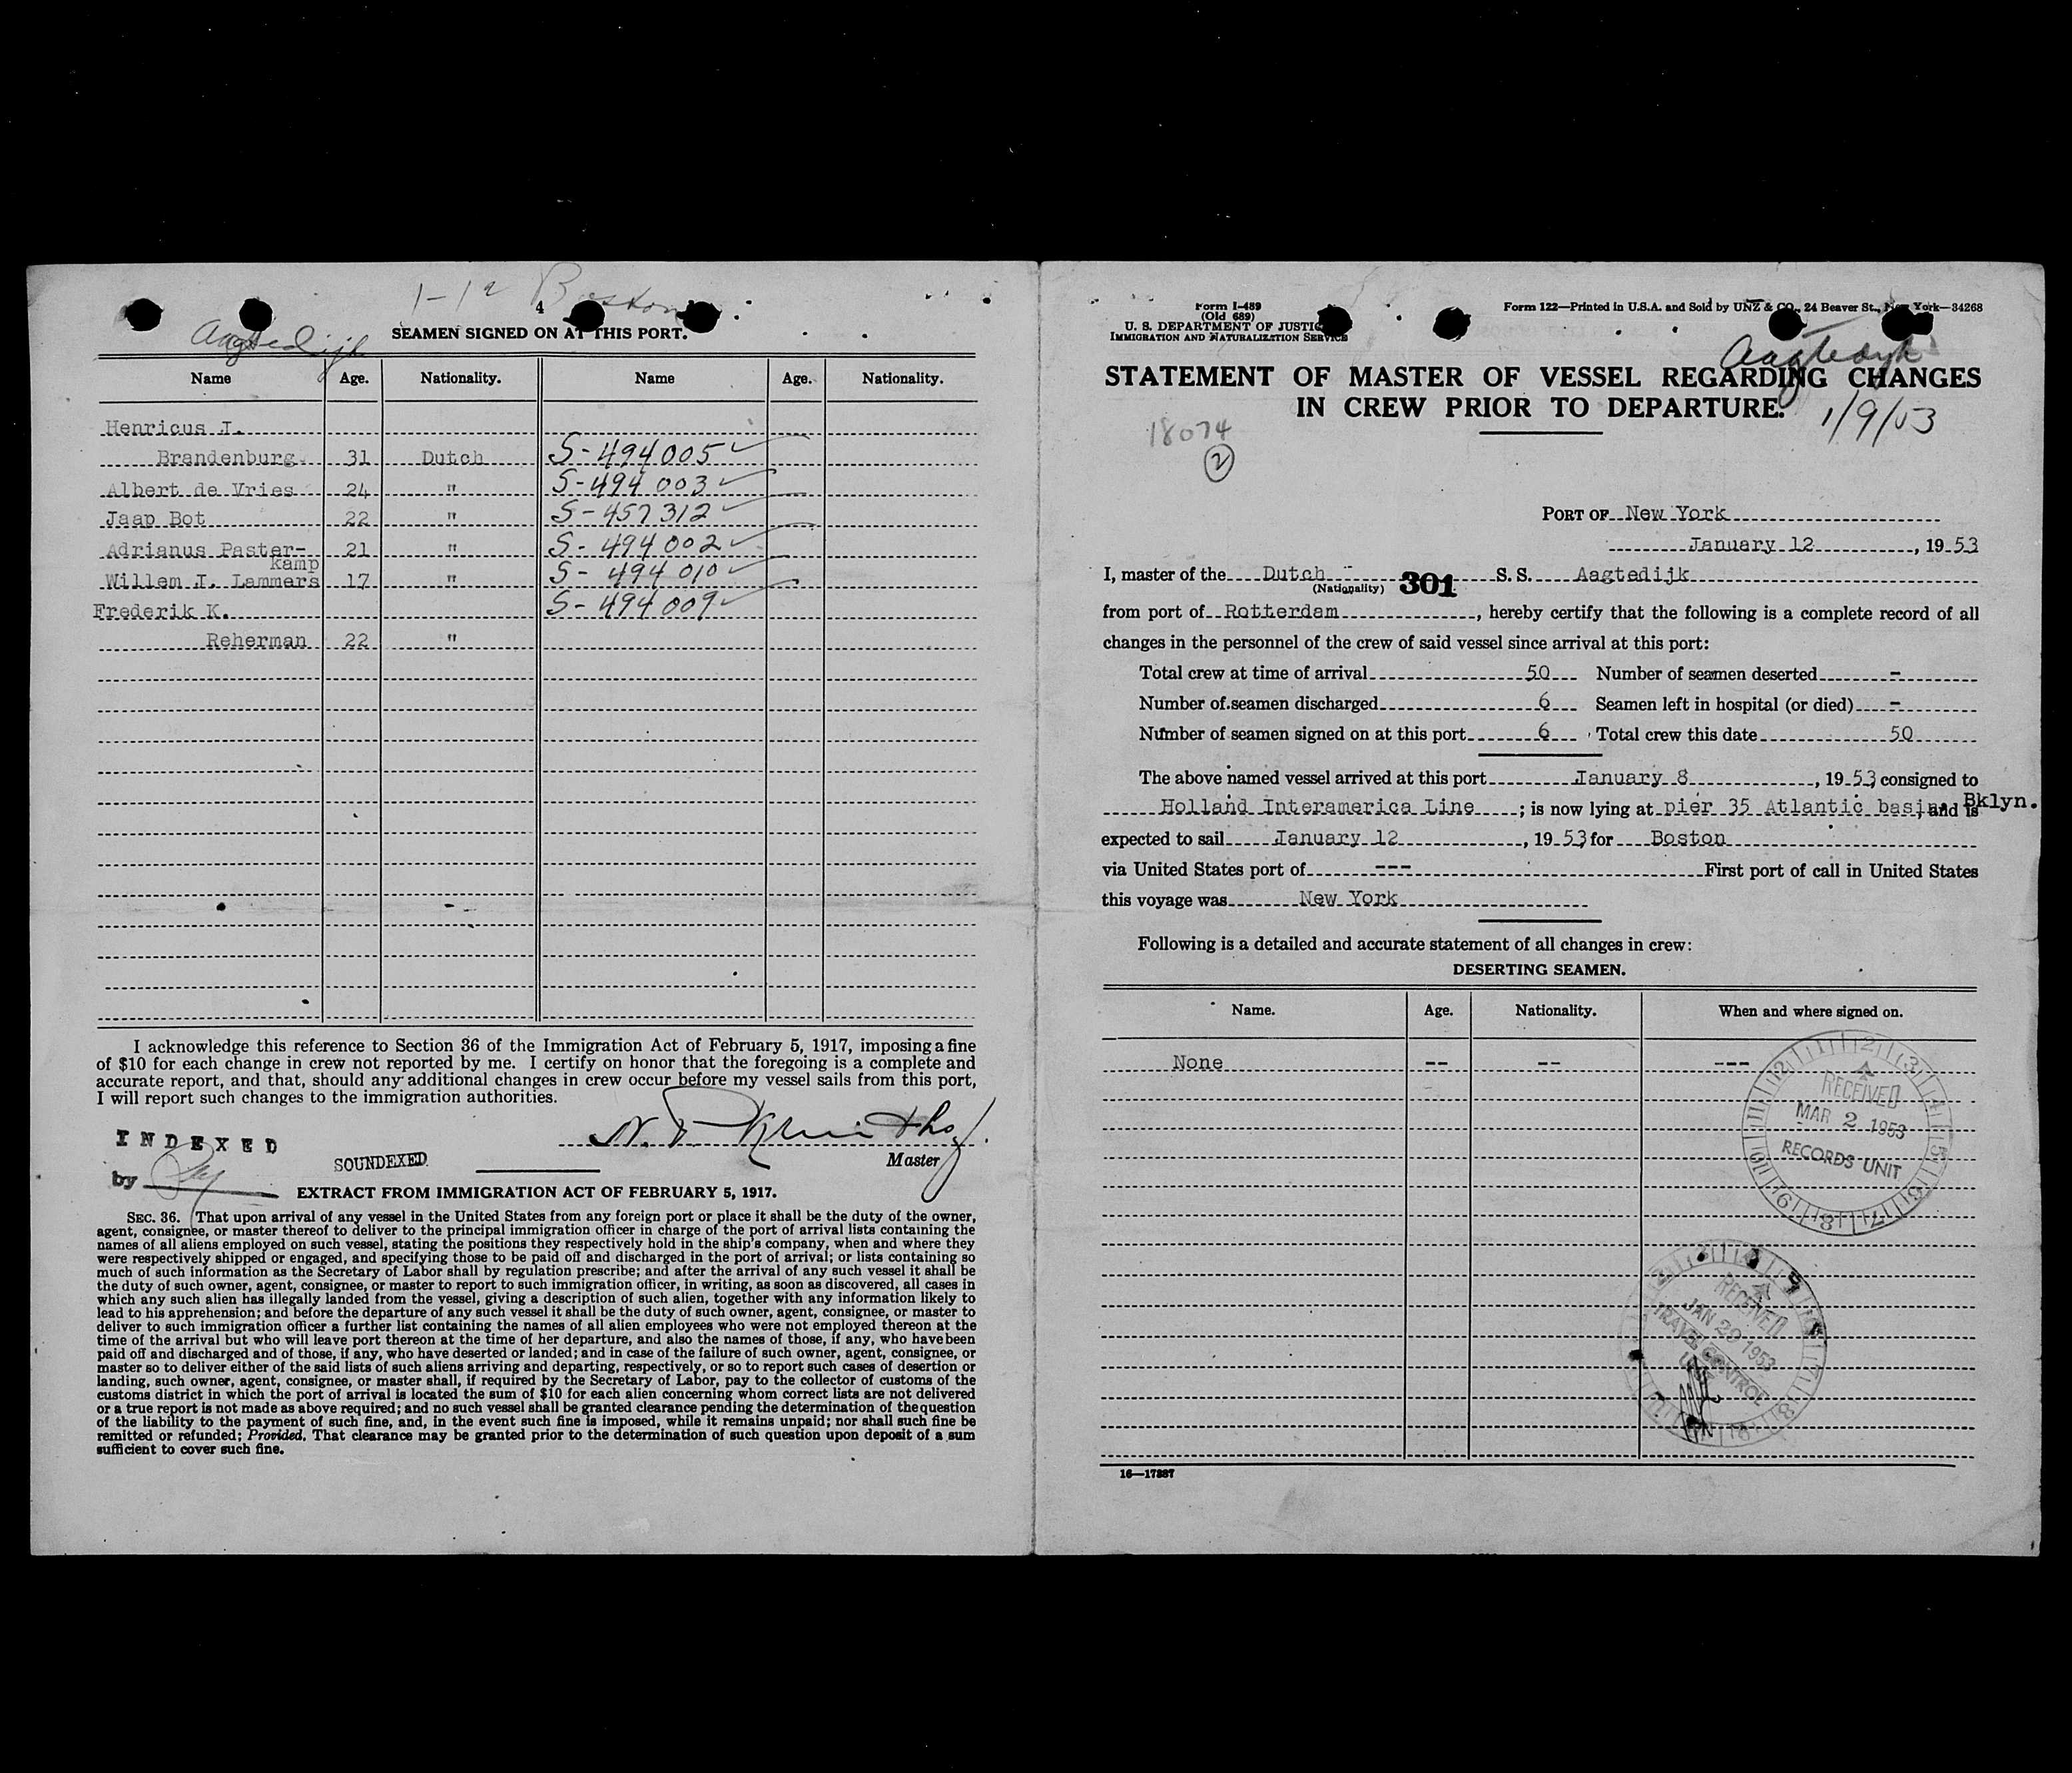 1-12 Boston
4
Aagtedijk
SEAMEN SIGNED ON AT THIS PORT.
Name Age. Nationality. Name Age. Nationality.
Henricus J.
Brandenburg 31 Dutch S-494005 ✓
Albert de Vries 24 " S-494003 ✓
Jaap Bot 22 " S-457312 ✓
Adrianus Paster- 21 " S-494002 ✓
kamp
Willem J. Lammers 17 " S-494010 ✓
Frederik K. S-494009 ✓
Reherman 22 "
I acknowledge this reference to Section 36 of the Immigration Act of February 5, 1917, imposing a fine
of $10 for each change in crew not reported by me. I certify on honor that the foregoing is a complete and
accurate report, and that, should any additional changes in crew occur before my vessel sails from this port,
I will report such changes to the immigration authorities.
INDEXED
by
SOUNDEXED
Master
EXTRACT FROM IMMIGRATION ACT OF FEBRUARY 5, 1917.
SEC. 36. That upon arrival of any vessel in the United States from any foreign port or place it shall be the duty of the owner,
agent, consignee, or master thereof to deliver to the principal immigration officer in charge of the port of arrival lists containing the
names of all aliens employed on such vessel, stating the positions they respectively hold in the ship's company, when and where they
were respectively shipped or engaged, and specifying those to be paid off and discharged in the port of arrival; or lists containing so
much of such information as the Secretary of Labor shall by regulation prescribe; and after the arrival of any such vessel it shall be
the duty of such owner, agent, consignee, or master to report to such immigration officer, in writing, as soon as discovered, all cases in
which any such alien has illegally landed from the vessel, giving a description of such alien, together with any information likely to
lead to his apprehension; and before the departure of any such vessel it shall be the duty of such owner, agent, consignee, or master to
deliver to such immigration officer a further list containing the names of all alien employees who were not employed thereon at the
time of the arrival but who will leave port thereon at the time of her departure, and also the names of those, if any, who have been
paid off and discharged and of those, if any, who have deserted or landed; and in case of the failure of such owner, agent, consignee, or
master so to deliver either of the said lists of such aliens arriving and departing, respectively, or so to report such cases of desertion or
landing, such owner, agent, consignee, or master shall, if required by the Secretary of Labor, pay to the collector of customs of the
customs district in which the port of arrival is located the sum of $10 for each alien concerning whom correct lists are not delivered
or a true report is not made as above required; and no such vessel shall be granted clearance pending the determination of the question
of the liability to the payment of such fine, and, in the event such fine is imposed, while it remains unpaid; nor shall such fine be
remitted or refunded; Provided, That clearance may be granted prior to the determination of such question upon deposit of a sum
sufficient to cover such fine.
Form I-489
(Old 689)
U. S. DEPARTMENT OF JUSTICE
IMMIGRATION AND NATURALIZATION SERVICE
Form 122—Printed in U.S.A. and Sold by UNZ & CO., 24 Beaver St., New York—34268
Aagtedyk
STATEMENT OF MASTER OF VESSEL REGARDING CHANGES
IN CREW PRIOR TO DEPARTURE.
1/9/53
18074
2
PORT OF New York
January 12, 1953
I, master of the Dutch 301 S. S. Aagtedijk
(Nationality)
from port of Rotterdam, hereby certify that the following is a complete record of all
changes in the personnel of the crew of said vessel since arrival at this port:
Total crew at time of arrival 50 Number of seamen deserted -
Number of seamen discharged 6 Seamen left in hospital (or died) -
Number of seamen signed on at this port 6 Total crew this date 50
The above named vessel arrived at this port January 8, 1953, consigned to
Holland Interamerica Line; is now lying at pier 35 Atlantic basin, Bklyn. and is
expected to sail January 12, 1953, for Boston
via United States port of --- First port of call in United States
this voyage was New York
Following is a detailed and accurate statement of all changes in crew:
DESERTING SEAMEN.
Name. Age. Nationality. When and where signed on.
None -- -- ---
RECEIVED
MAR 2 1953
RECORDS UNIT
RECEIVED
JAN 29 1953
TRAVEL CONTROL
16—17387